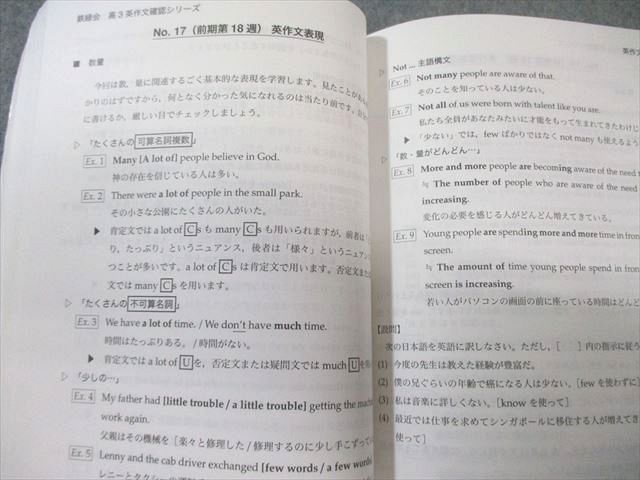 鉄緑会 高3英作文確認シリーズ
No. 17（前期第18週） 英作文表現
■ 数量
今回は数，量に関連するごく基本的な表現を学習します。見たことがあ
かりのはずですから，何となく分かった気になれるのは当たり前です。
に書けるか，厳しい目でチェックしましょう。
▷ 「たくさんの 可算名詞複数 」
Ex. 1 Many [A lot of] people believe in God.
神の存在を信じている人は多い。
Ex. 2 There were a lot of people in the small park.
その小さな公園にたくさんの人がいた。
▶ 肯定文では a lot of C s も many C s も用いられますが，前者は「
り，たっぷり」というニュアンス，後者は「様々」というニュアン
つことが多いです。a lot of C s は肯定文で用います。否定文また
文では many C s を用います。
▷ 「たくさんの 不可算名詞 」
Ex. 3 We have a lot of time. / We don't have much time.
時間はたっぷりある。/ 時間がない。
▶ 肯定文では a lot of U を，否定文または疑問文では much U を
▷ 「少しの…」
Ex. 4 My father had [little trouble / a little trouble] getting the mach
work again.
父親はその機械を［楽々と修理した / 修理するのに少し手こずって
Ex. 5 Lenny and the cab driver exchanged [few words / a few words
レニーとタクシー
英作文
Not ... 主語構文
Ex. 6 Not many people are aware of that.
そのことを知っている人は少ない。
Ex. 7 Not all of us were born with talent like you are.
私たち全員があなたみたいに才能をもって生まれてきたわけじ
▶ 「少ない」では，few ばかりではなく not many も使えるよう
▷ 「数・量がどんどん…」
Ex. 8 More and more people are becoming aware of the need
≒ The number of people who are aware of the need
increasing.
変化の必要を感じる人がどんどん増えてきている。
Ex. 9 Young people are spending more and more time in fron
screen.
≒ The amount of time young people spend in fron
screen is increasing.
若い人がパソコンの画面の前に座っている時間はどんど
【設問】
次の日本語を英語に訳しなさい。ただし，［ ］内の指示に従う
(1) 今度の先生は教えた経験が豊富だ。
(2) 僕の兄ぐらいの年齢で癌になる人は少ない。［few を使わずに］
(3) 私は音楽に詳しくない。［know を使って］
(4) 最近では仕事を求めてシンガポールに移住する人が増えてき
使って］